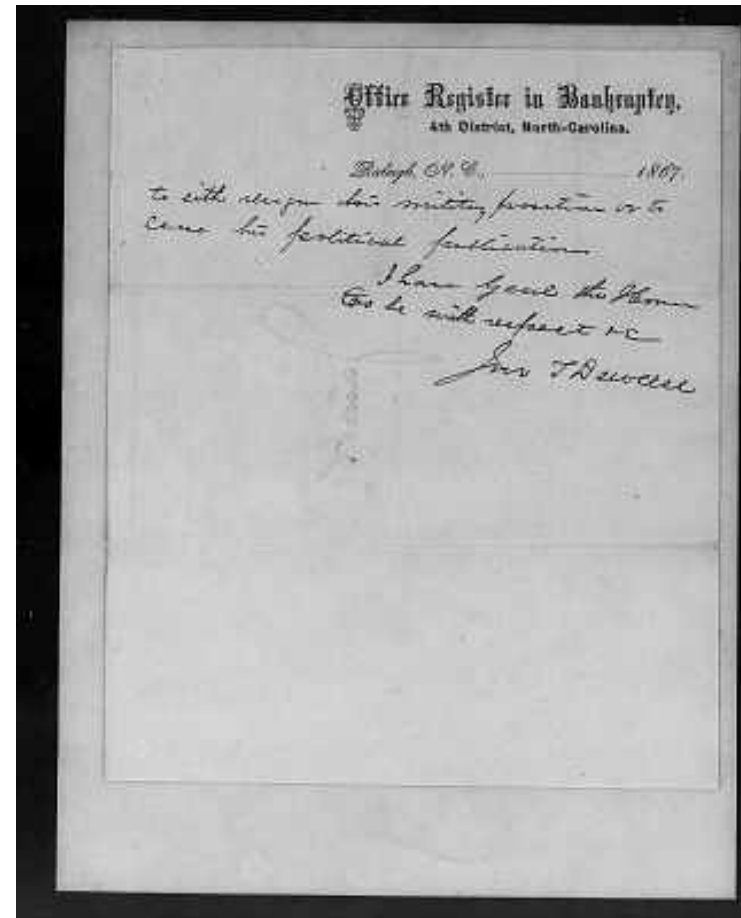 Office Register in Bankruptcy,
4th District, North-Carolina.
Raleigh, N. C., 1867.
to eith resign his military position or to
cease his political publications
I have Genl the Honor
To be with respect &c
Jno T Deweese